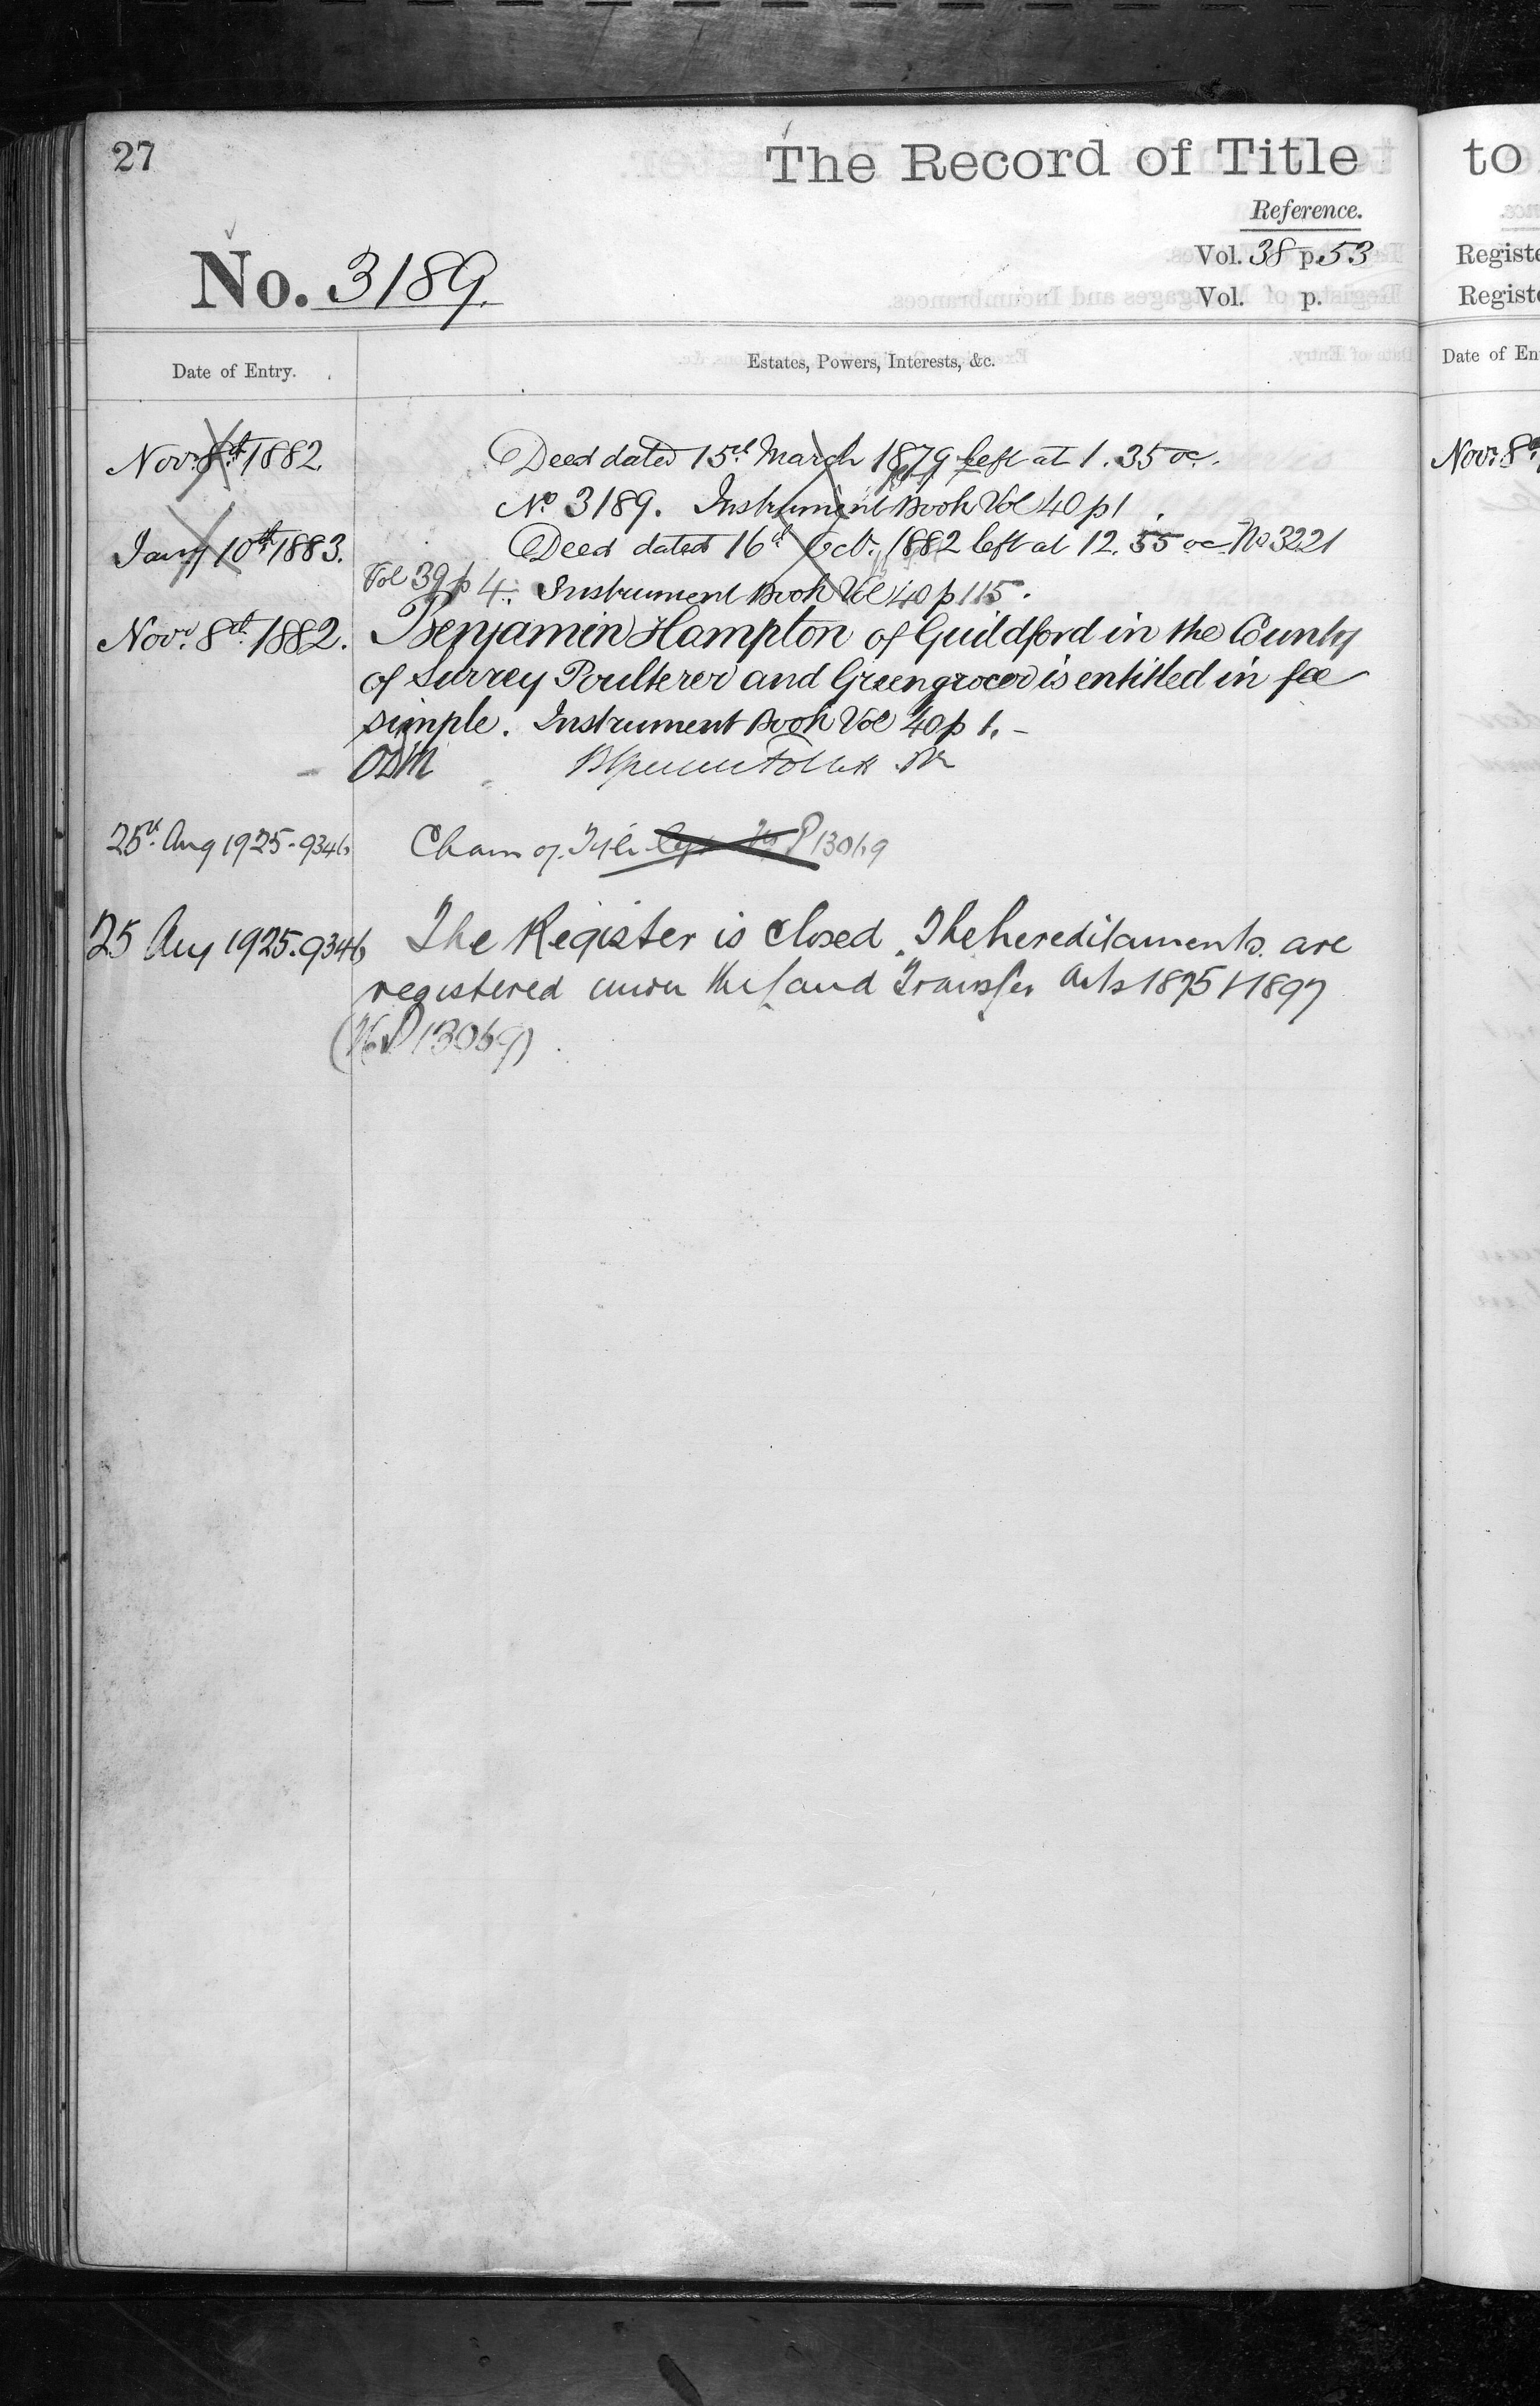 27
The Record of Title
Reference.
Vol. 38 p. 53
No. 3189.
Vol. p.
Date of Entry.
Estates, Powers, Interests, &c.
Novr. 8th 1882.
Deed dated 15th March 1879 left at 1.35 oc.
No 3189. Instrument Book Vol 40 p 1
Jany 10th 1883.
Deed dated 16th Oct. 1882 left at 12.55 oc No 3221
Vol 39 p 4. Instrument Book Vol 40 p 115.
Novr. 8th 1882.
Benjamin Hampton of Guildford in the County
of Surrey Poulterer and Greengrocer is entitled in fee
simple. Instrument Book Vol 40 p 1. -
25th Aug 1925. 9346
P 13069
25 Aug 1925. 9346
The Register is closed. The hereditaments are
registered under the Land Transfer Acts 1875 & 1897
P 13069)
to
Registe
Registe
Date of En
Novr. 8th